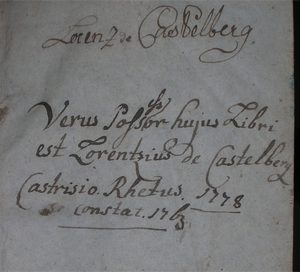 Lorenz de Castelberg
Verus Possessor hujus Libri
est Lorentzius de Castelberg
Castrisio. Rhetus. 1778
constat. 1763